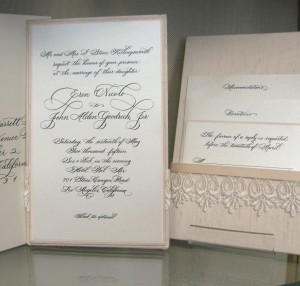 Mr. and Mrs. J. Blain Hollingsworth
request the honor of your presence
at the marriage of their daughter
Erin Nicole
to
John Alden Goodrich, Jr.
Saturday, the sixteenth of May
Two thousand fifteen
Six o'clock in the evening
Hotel Bel-Air
701 Stone Canyon Road
Los Angeles, California
Black tie optional
Accommodations
Directions
The favour of a reply is requested
before the twentieth of April